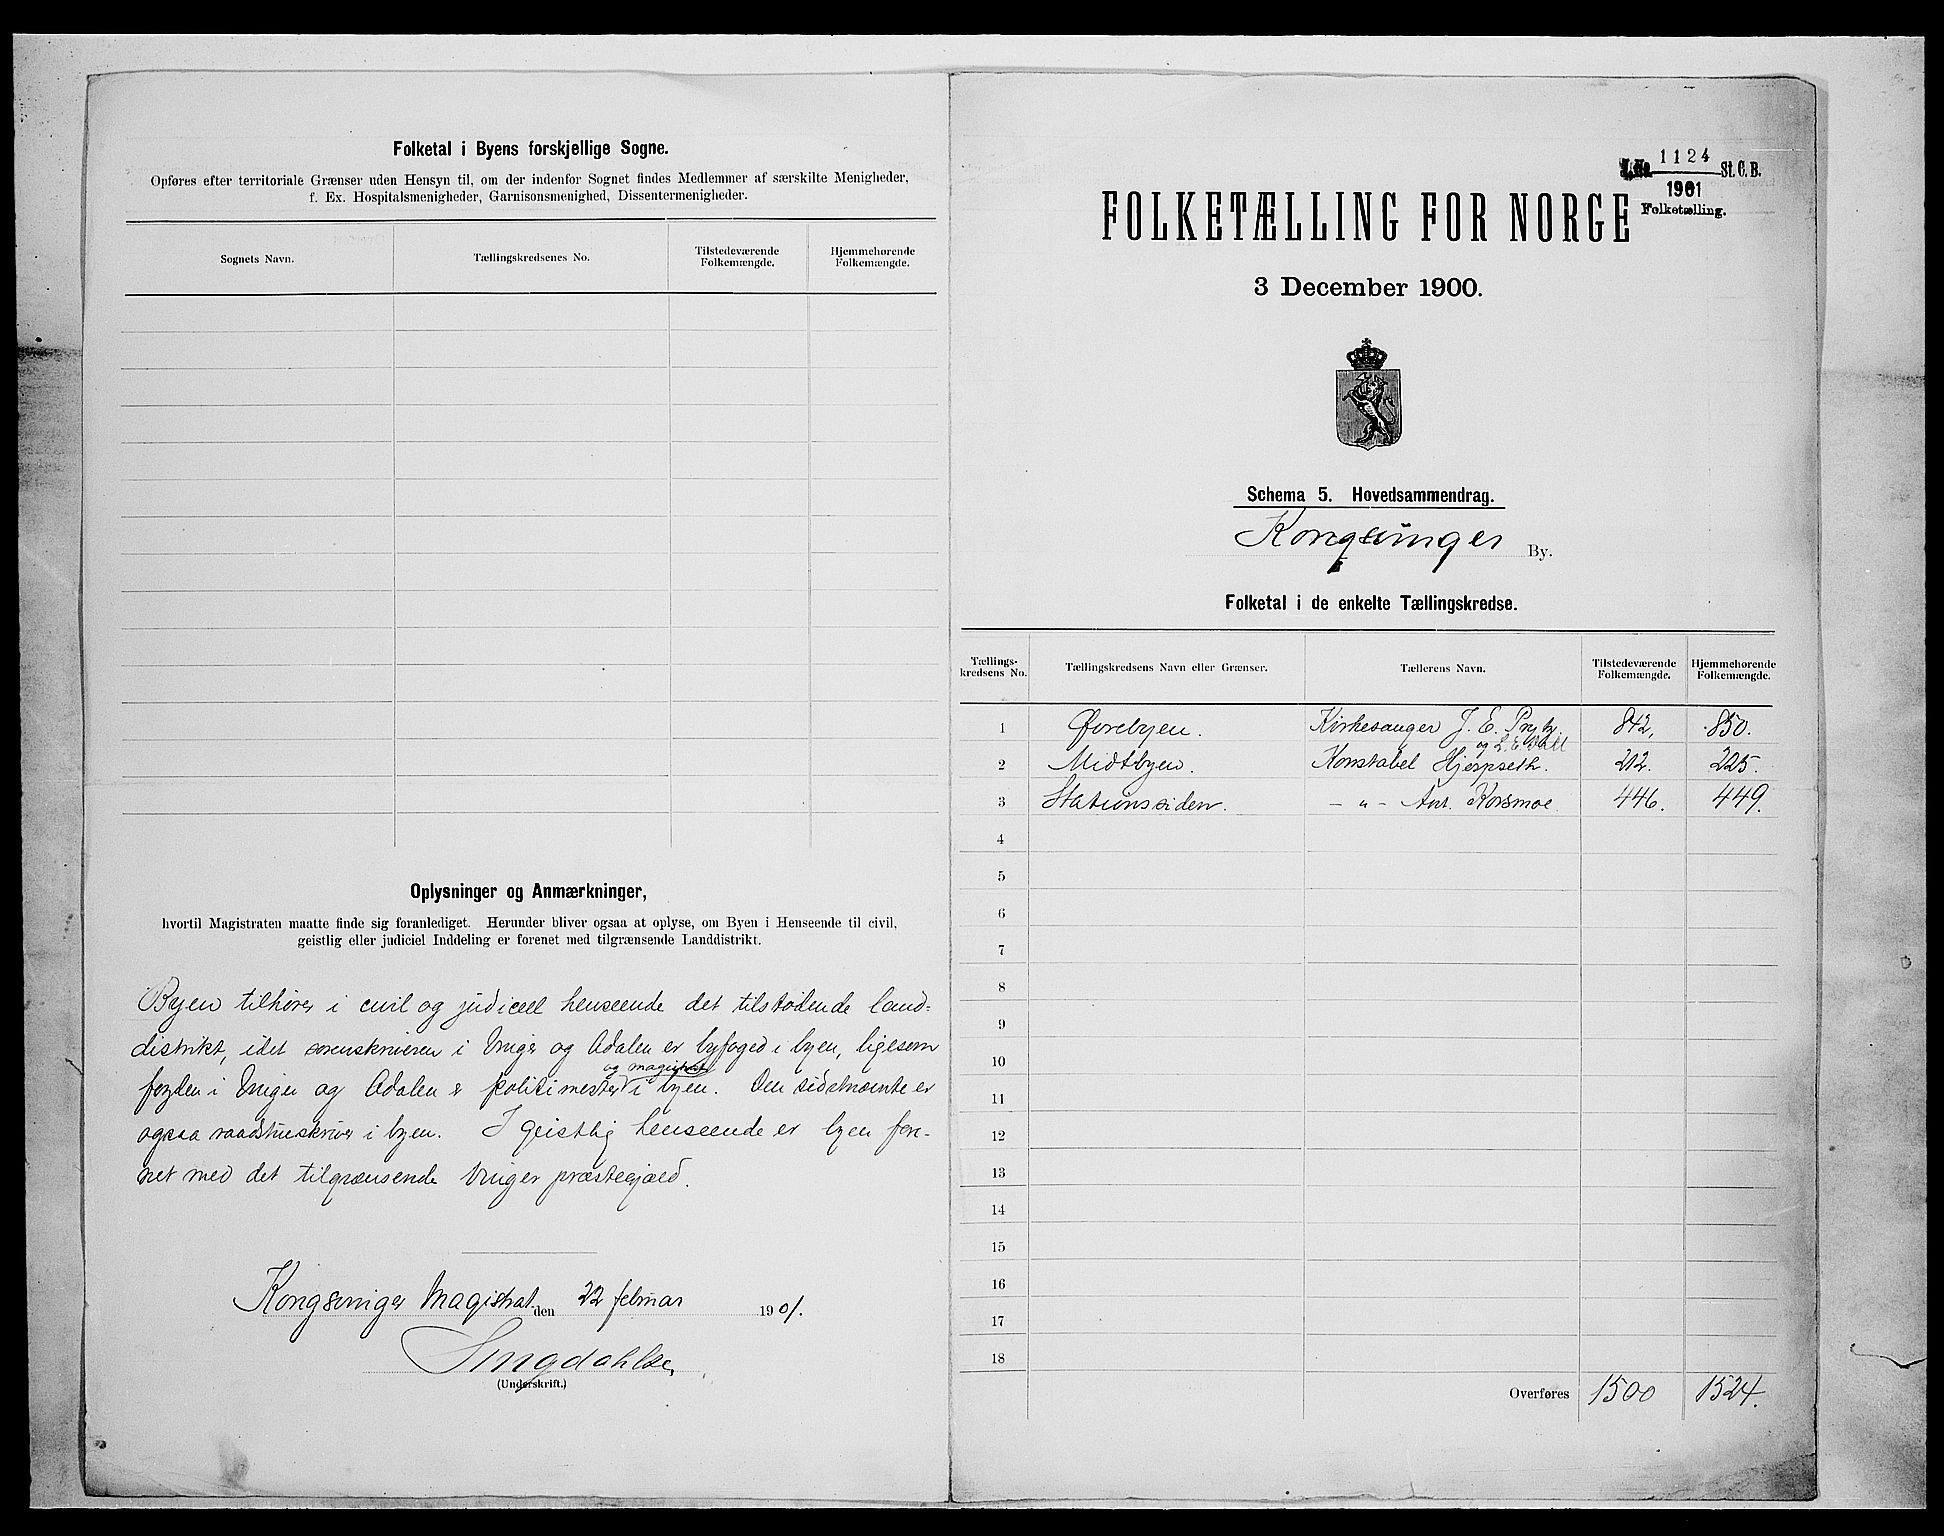 Folketal i Byens forskjellige Sogne.
Opføres efter territoriale Grænser uden Hensyn til, om der indenfor Sognet findes Medlemmer af særskilte Menigheder,
f. Ex. Hospitalsmenigheder, Garnisonsmenighed, Dissentermenigheder.
Sognets Navn. Tællingskredsenes No. Tilstedeværende Folkemængde. Hjemmehørende Folkemængde.
Oplysninger og Anmærkninger,
hvortil Magistraten maatte finde sig foranlediget. Herunder bliver ogsaa at oplyse, om Byen i Henseende til civil,
geistlig eller judiciel Inddeling er forenet med tilgrænsende Landdistrikt.
Byen tilhører i civil og judiciel henseende det tilstødende land-
distrikt, idet sorenskriveren i Vinger og Odalen er byfoged i byen, ligesom
og magistrat
fogden i Vinger og Odalen er politimester i byen. Den sidstnævnte er
ogsaa raadstueskriver i byen. I geistlig henseende er byen fore-
net med det tilgrænsende Vinger præstegjæld.
Kongsvinger Magistrat den 22 februar 1901.
(Underskrift.)
No 1124 St. C. B.
1901
Folketælling.
FOLKETÆLLING FOR NORGE
3 December 1900.
Schema 5. Hovedsammendrag.
Kongsvinger By.
Folketal i de enkelte Tællingskredse.
Tællings-kredsens No. Tællingskredsens Navn eller Grænser. Tællerens Navn. Tilstedeværende Folkemængde. Hjemmehørende Folkemængde.
1 Øvrebyen. Kirkesanger J. E. Prytz 842, 850.
og L. E. Dahl
2 Midtbyen. Konstabel Hjerpseth. 212. 225.
3 Stationssiden. — " — Ant. Korsmoe. 446. 449.
4
5
6
7
8
9
10
11
12
13
14
15
16
17
18
Overføres 1500 1524.